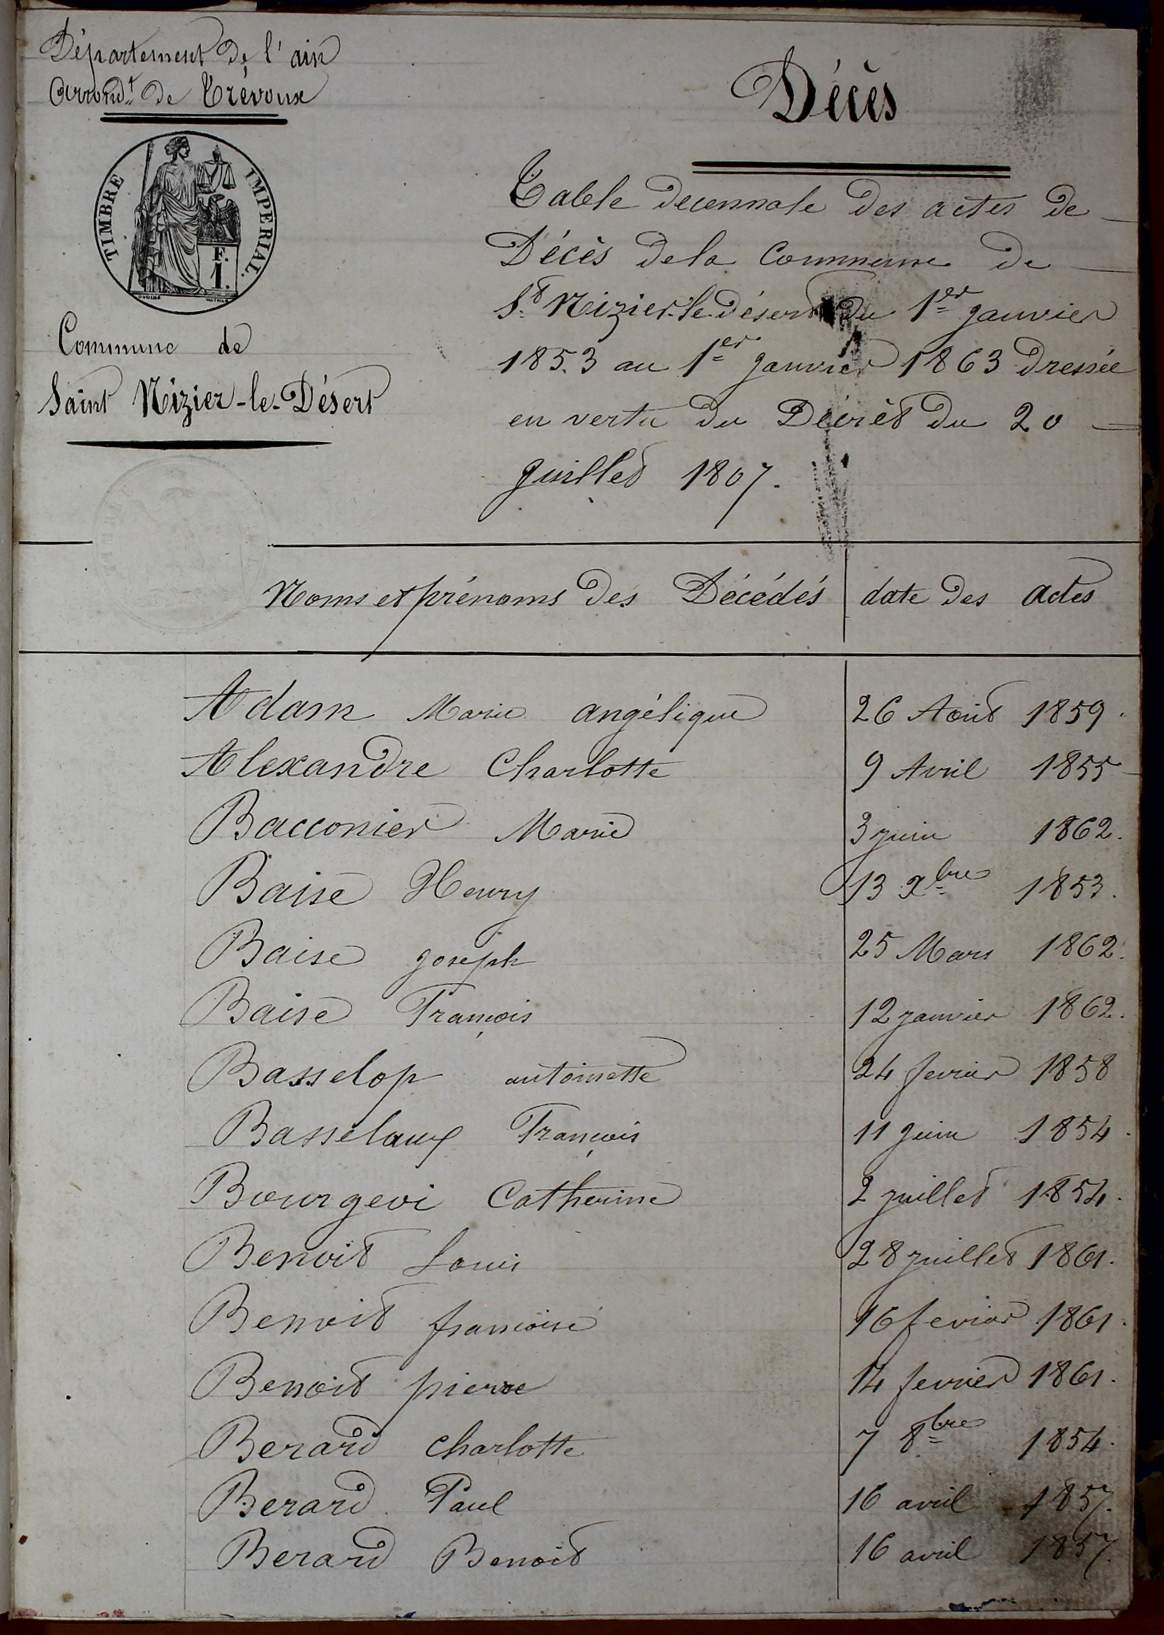 Département de l'ain
Arrond.t de Trévoux
TIMBRE IMPERIAL
F.
1.
Commune de
Saint Nizier-le-Désert
Décès
Table decennale des actes de
Décès de la Commune de
St. Nizier-le-désert du 1er janvier
1853 au 1er janvier 1863 dressée
en vertu du Décrèt du 20
juillet 1807.
Noms et prénoms des Décédés date des actes
Adam Marie angélique 26 Aout 1859.
Alexandre Charlotte 9 Avril 1855
Bacconier Marie 3 juin 1862.
Baise Henry 13 Xbre 1853.
Baise joseph 25 Mars 1862.
Baise François 12 janvier 1862.
Basselop antoinette 24 fevrier 1858
Basselaup François 11 juin 1854.
Bourgeoi Catherine 2 juillet 1854.
Benoit Louis 28 juillet 1861.
Benoit francoise 16 fevrier 1861.
Benoit pierre 14 fevrier 1861.
Berard Charlotte 7 8bre 1854.
Berard Paul 16 avril 1857.
Berard Benoit 16 avril 1857.